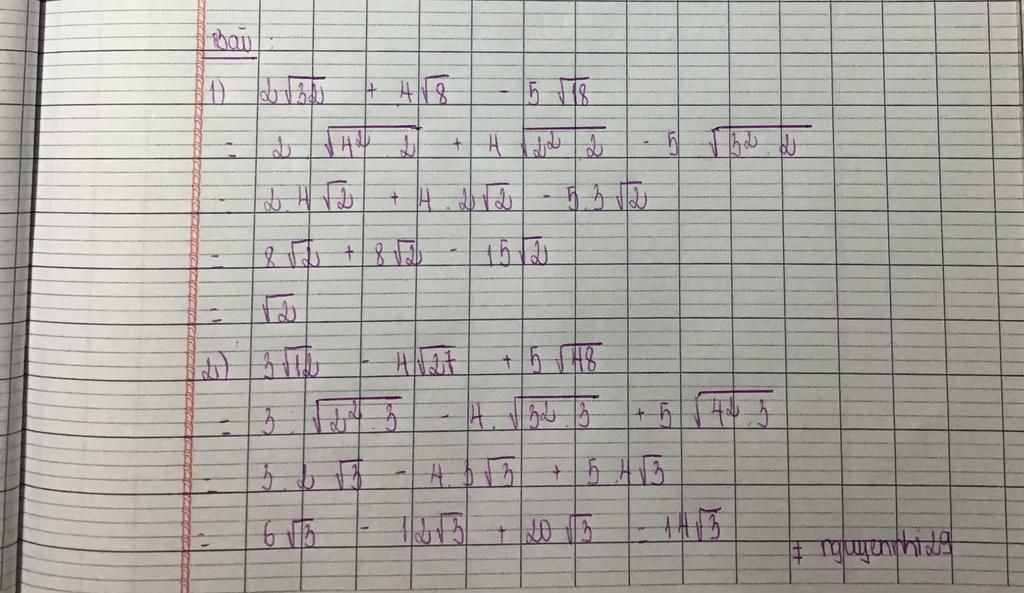 Bài :
1) 2√32 + 4√8 - 5√18
= 2 √4² 2 + 4 √2² 2 - 5 √3² 2
= 2.4√2 + 4.2√2 - 5.3√2
= 8√2 + 8√2 - 15√2
= √2
2) 3√12 - 4√27 + 5√48
= 3.√2².3 - 4.√3².3 + 5 √4².3
= 3 2 √3 - 4.3√3 + 5 4√3
= 6√3 - 12√3 + 20√3 = 14√3
# nguyennhi29